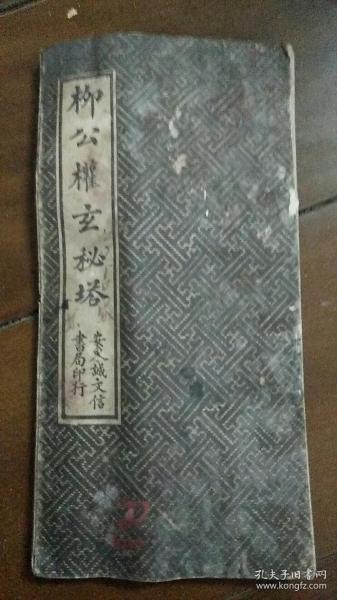 柳公權玄秘塔
誠文信
書局印行
孔夫子旧书网
www.kongfz.com